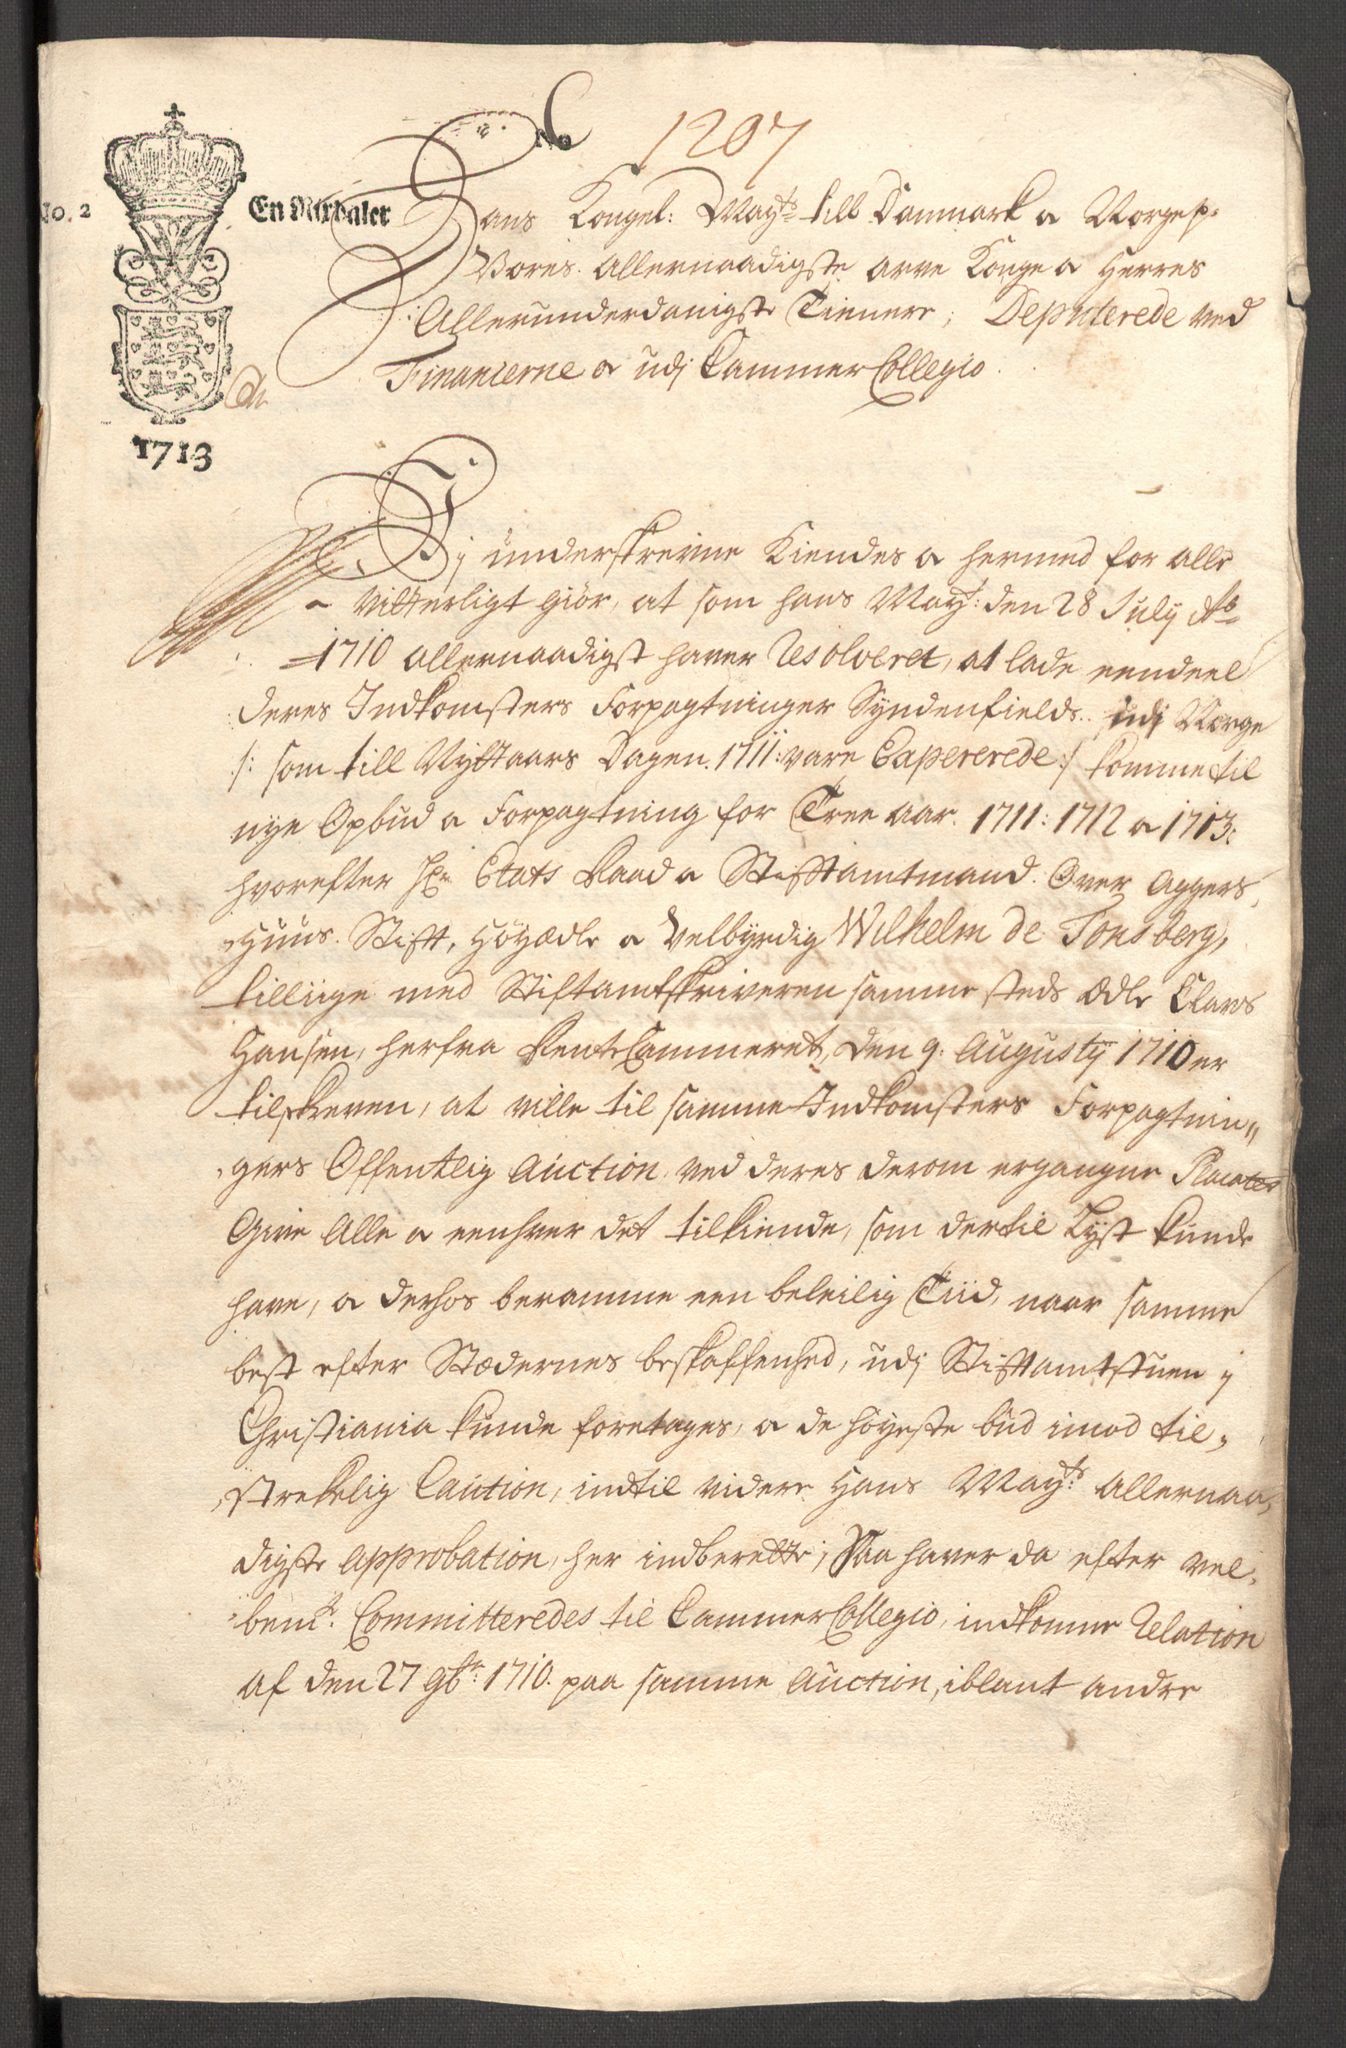 No 1207
No. 2
En Rixdaler
Hans Kongel: Mayts till Danmark a Norges
Vores Allernaadigste arve Konge a Herres
Allerunderdanigste Tienere, Deputerede ved
Financerne a udj Cammer Collegio.
1713
Vj underskrevne Kiendes a hermed for alle
vitterligt giör, at som hans Mayt: den 28 Julij Ao
1710 allernaadigst haver Resolveret, at lade eendeel
deres Indkomsters Forpagtninger Syndenfields udj Norge
/: som till Nyttaars Dagen 1711: vare Expererede :/ komme til
nye Opbud a Forpagtning for Tree aar. 1711: 1712 a 1713:
hvorefter Hr Etats Raad a Stifftamtmand Over Aggers,
huus Stift, Höyædle a Velbyrdig Wilhelm de Tonsberg,
tilliige med Stiftamtskriveren sammesteds Ædle Claus
Hansen, herfra Rente Cammeret, den 9. Augustij 1710 er
tilskreven, at ville til samme Indkomsters Forpagtnin„
gers Offentlig Auction ved deres derom ergangne Placater
Give Alle a eenhver det tilkiende, som dertil Lyst kunde
have, a derhos beramme een beleilig Tiid, naar samme
best efter Stædernes beskaffenhed, udj Stifftamtstuen j
Christiania kunde foretages, a de höyeste bud imod til„
strekelig Caution, indtil videre Hans Mayts: Allernaa„
digste Approbation, her indberette; Saa haver da efter vel„
bemt: Committeredes til Cammer Collegio, indkomne Relation
af den 27 9br: 1710. paa samme Auction, iblant andre